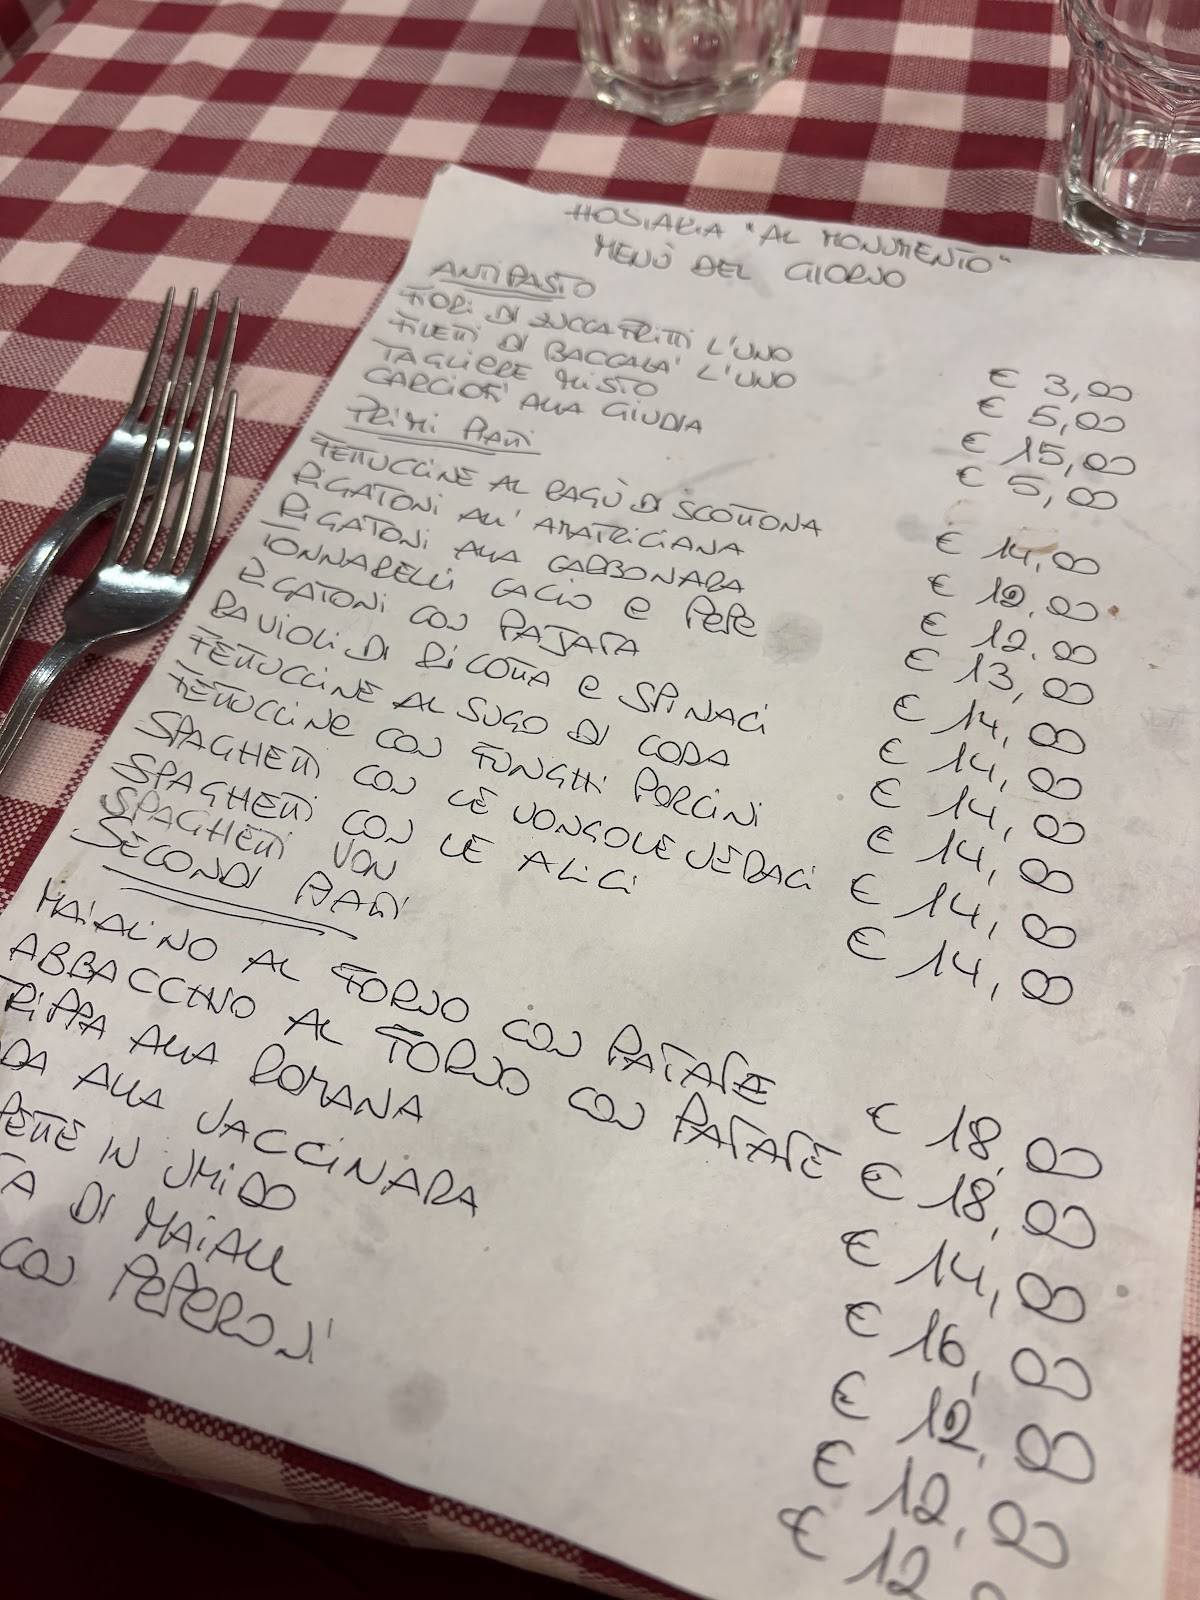 HOSTARIA "AL MONUMENTO"
MENÙ DEL GIORNO
ANTIPASTO
FIORI DI ZUCCA FRITTI L'UNO € 3,00
FILETTI DI BACCALA' L'UNO € 5,00
TAGLIERE MISTO € 15,00
CARCIOFI ALLA GIUDIA € 5,00
PRIMI PIATTI
FETTUCCINE AL RAGÙ DI SCOTTONA € 14,00
RIGATONI ALL'AMATRICIANA € 12,00
RIGATONI ALLA CARBONARA € 12,00
TONNARELLI CACIO e PEPE € 13,00
RIGATONI CON PAJATA € 14,00
RAVIOLI DI RICOTTA e SPINACI € 14,00
FETTUCCINE AL SUGO DI CODA € 14,00
FETTUCCINE CON FUNGHI PORCINI € 14,00
SPAGHETTI CON LE VONGOLE VERACI € 14,00
SPAGHETTI CON LE ALICI € 14,00
SPAGHETTI VON
SECONDI PIATTI
MAIALINO AL FORNO CON PATATE € 18,00
ABBACCHIO AL FORNO CON PATATE € 18,00
TRIPPA ALLA ROMANA € 14,00
DA ALLA VACCINARA € 16,00
PETTE IN UMIDO € 12,00
TA DI MAIALE € 12,00
CON PEPERONI € 12